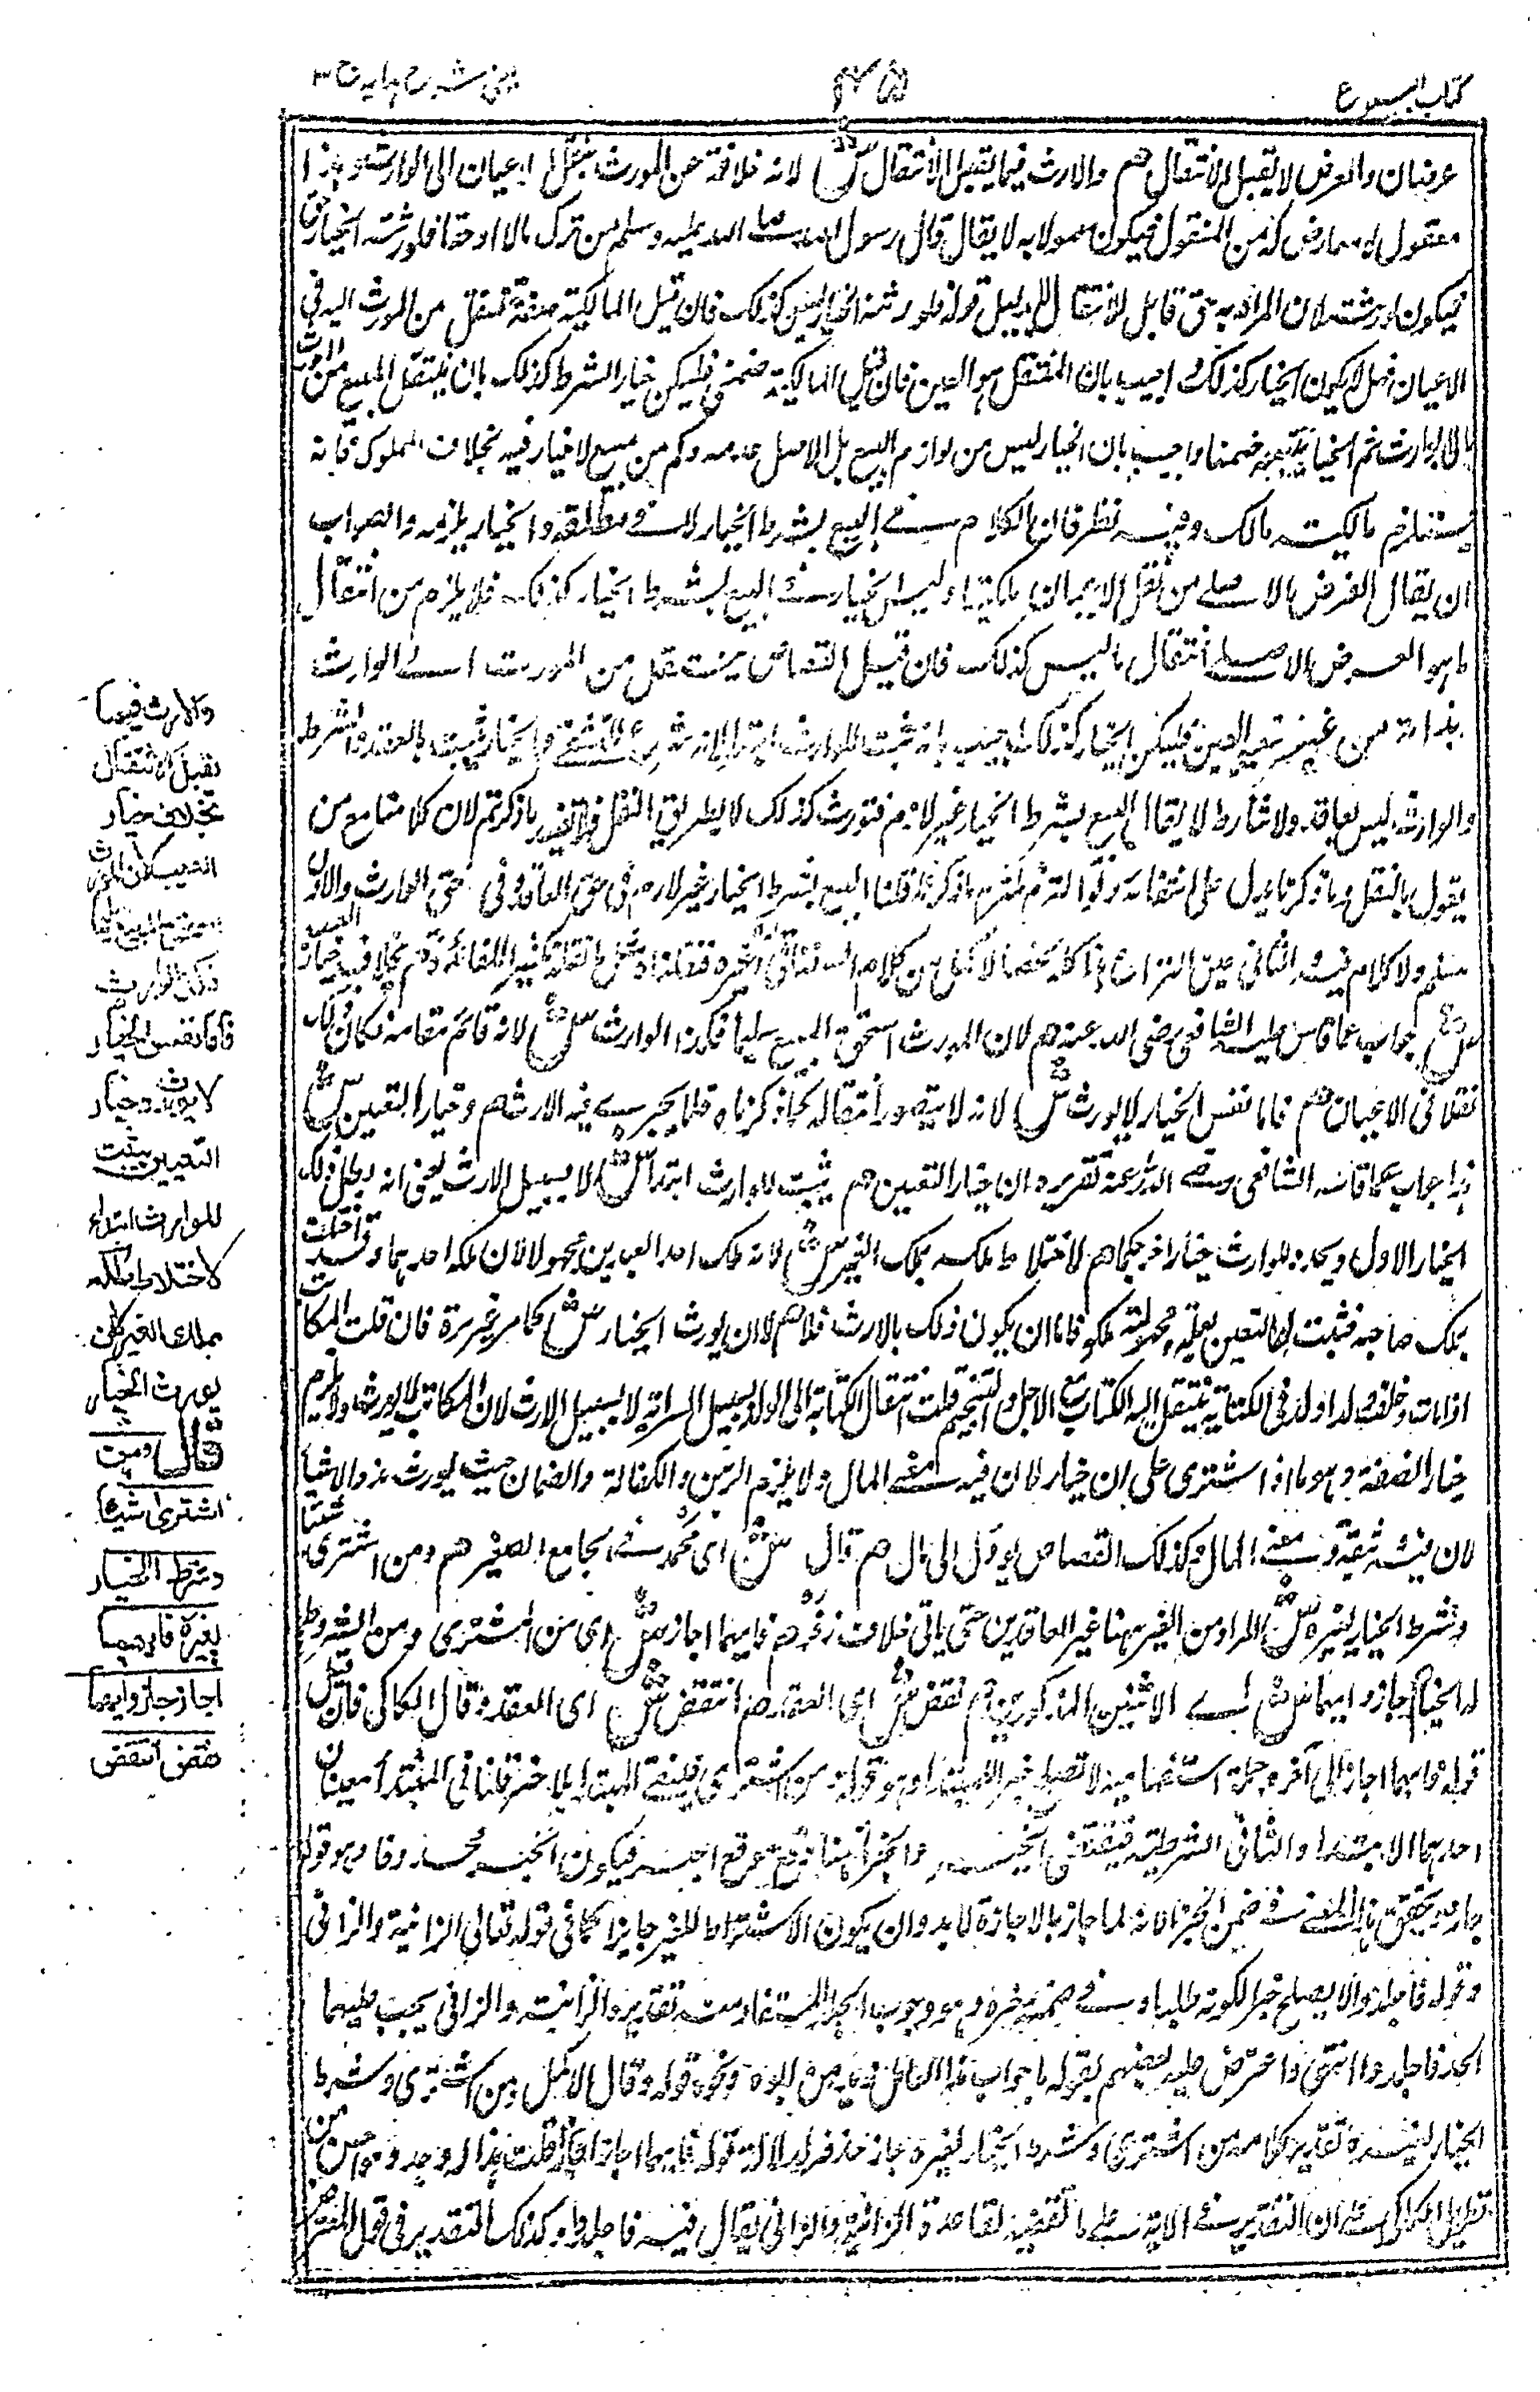 كتاب البيوع
عينى شرح هدايه ج ٣
عرضان والعرض لا يقبل الانتقال هم والارث فيما يقبل الانتقال ش لانه خلافة عن المورث بنقل الاعيان الى الوارث وهذا
معقول لا معارض له من المنقول فيكون معمولا به لا يقال قال رسول الله صلى الله عليه وسلم من ترك مالا او حقا فلورثته والخيار حق
فيكون لورثته لان المراد به حق قابل للانتقال بدليل قوله فلورثته والخيار ليس كذلك فان قيل المالكية صفة تنتقل من المورث اليه فى
الاعيان فهل لا يكون الخيار كذلك اجيب بان المنتقل هو العين فان قيل المالكية ضمنى فليكن خيار الشرط كذلك بان ينتقل المبيع من المورث
الى الوارث ثم الخيار يتبعه ضمنا واجيب بان الخيار ليس من لوازم البيع بل الاصل عدمه وكم من مبيع لا خيار فيه بخلاف المملوك فانه
يستلزم مالكية مالك وفيه نظر فان الكلام فى البيع بشرط الخيار لا فى مطلقه والخيار يلزمه والصواب
ان يقال الغرض الاصلى من نقل الاعيان ملكيتها وليس الخيار فى البيع بشرط الخيار كذلك فلا يلزم من انتقال
ما هو الغرض الاصلى انتقال ما ليس كذلك فان قيل القصاص ينتقل من المورث الى الوارث
بذاته من غير تبعية العين فليكن الخيار كذلك اجيب بانه ثبت للوارث ابتداء لانه شرع للتشفى والخيار يثبت بالعقد والشرط
والوارث ليس بعاقد ولا شارط لا يقال البيع بشرط الخيار غير لازم فتورث كذلك لا بطريق النقل فلا يفيد ما ذكرتم لان كلامنا مع من
يقول بالنقل وما ذكرنا يدل على انتفائه ولو التزم ملتزم ما ذكرنا قلنا البيع بشرط الخيار غير لازم فى حق العاقد وفى حق الوارث والاول
مسلم ولا كلام فيه والثانى عين النزاع
ش جواب عما قاس عليه الشافعى رضى الله عنه هم لان المورث استحق المبيع سليما فكذا الوارث ش لانه قائم مقامه فكان ذلك
نقلا فى الاعيان هم فاما نفس الخيار لا يورث ش لانه لا يتصور انتقاله كما ذكرناه فلا يجرى فيه الارث هم وخيار التعيين ش
هذا جواب عما قاسه الشافعى رضى الله عنه تقريره ان خيار التعيين هم يثبت للوارث ابتداء ش لا بسبيل الارث يعنى انه بطل ذلك
الخيار الاول ويحدد للوارث خيار آخر حكما هم لاختلاط ملكه بملك الغير ش لانه ملك احد العبدين مجهولا لان ملكه احدهما وقد اختلط
بملك صاحبه فثبت له التعيين فاما ان يكون ذلك بالارث فلا هم لا ان يورث الخيار ش كما مر غير مرة فان قلت المكاتب
اذا مات وخلف ولدا ولد فى الكتابة ينتقل اليه الكتابة مع الاجل والتنجيم قلت انتقال الكتابة الى الولد بسبيل السراية لا بسبيل الارث لان المكاتب لا يورث ولا يلزم
خيار الصفقة وهو ما اذا اشترى على ان خيار لان فيه معنى المال ولا يلزم الرهن والكفالة والضمان حيث يورث هذه الاشياء
لان فيه وثيقة وفيه معنى المال وكذلك القصاص يؤل الى مال هم قال ش اى محمد فى الجامع الصغير هم ومن اشترى شيئا
وشرط الخيار لغيره ش المراد من الغير ههنا غير العاقدين حتى يأتى خلاف زفر هم فايهما اجاز ش اى من المشترى ومن المشروط
له الخيار هم جاز وايهما ش اى الاثنين المذكورين هم نقض ش اى العقد هم انتقض ش اى العقد وقال الكاكى فان قيل
قوله فايهما اجاز الى آخره جملة استفهامية لا تصلح خبر المبتدا وهو قوله من اشترى فيبقى المبتدا بلا خبر قلنا فى المبتدأ معنيان
احدهما الابتداء والثانى الشرطية فيقتضى الخبر والجزاء هنا وقع موقع الخبر فيكون الخبر محذوفا وهو قوله
جاز لانه لما جاز بالاجازة لا بد وان يكون الاشتراط للغير جايزا كما فى قوله تعالى الزانية والزانى
وقوله فاجلدوا لا يصلح خبرا لكونه طلبا وفى ضمنه خبره وهو وجوب الجلد المستفاد منه تقديره الزانية والزانى يجب عليهما
الجلد فاجلدوا انتهى واعترض عليه بعضهم بقوله وقال الاكمل ومن اشترى وشرط
الخيار لغيره تقدير كلامه من اشترى وشرط الخيار لغيره جاز حذف لدلالة قوله فايهما اجاز جاز قلت هذا له وجه وهو احسن من
تطويل الكاكى على ان التقدير فى الآية على ما تقتضيه القاعدة الزانية والزانى يقال فيه فاجلدوا وكذلك التقدير فى قول المصنف
والارث فيما
يقبل الانتقال
بخلاف خيار
العيب لان المورث
استحق المبيع سليما
فكذا الوارث
فاما نفس الخيار
لا يورث وخيار
التعيين يثبت
للوارث ابتداء
لاختلاط ملكه
بملك الغير لا ان
يورث الخيار
قال ومن
اشترى شيئا
وشرط الخيار
لغيره فايهما
اجاز جاز وايهما
نقض انتقض